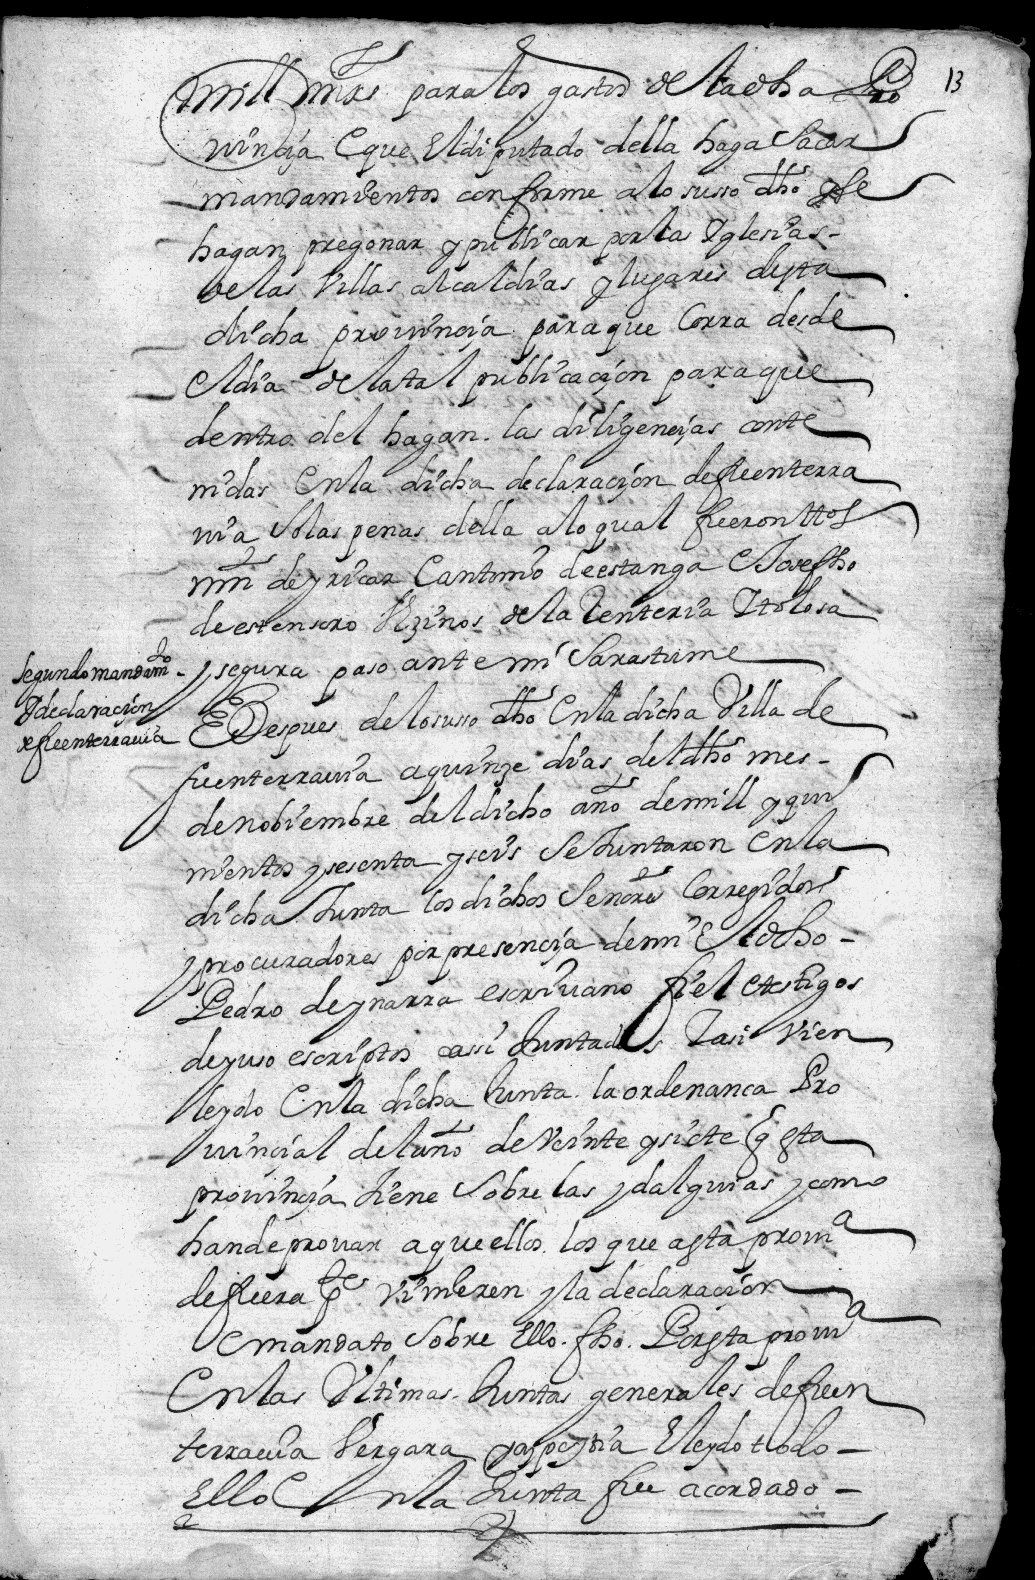 13
mill mrs para los gastos de la dha Pro
vincia E que El diputado della haga Sacar
mandamientos conforme a lo susso dho y se
hagan pregonar y publicar por las Iglesias
de las Villas alcaldias y lugares desta
dicha provincia para que Corra desde
El dia de la tal publicacion para que
dentro del hagan las diligencias conte
nidas En la dicha declaracion de fuenterra
via So las penas della a lo qual fueron ttos
min de yricar E antonio de estanga E Josepho
de estensoro Vezinos de la Renteria Itolosa
y segura paso ante mi Sarastume
segundo mandamto
y declaracion
de fuenterravia
E Despues de lo susso dho En la dicha Villa de
fuenterravia a quinze dias del dho mes
de nobiembre del dicho año de mill y qui
nientos y sesenta y seis Se Juntaron En la
dicha Junta los dichos Señores Corregidor
y procuradores por presencia de mi El dho
Pedro de ynarra escrivano fiel E testigos
de yuso escriptos E assi Juntados Iasi Vien
leydo En la dicha Junta la ordenanca Pro
vincial del año de Veinte y siete q esta
provincia tiene Sobre las ydalguias y como
han de provar aquellos los que a esta prova
de fuera pte vinieren y la declaracion
E mandato Sobre Ello fho Por esta prova
En las Vltimas Juntas generales de fuen
terravia Vergara y azpeytia E leydo todo
Ello En la Junta fue acordado